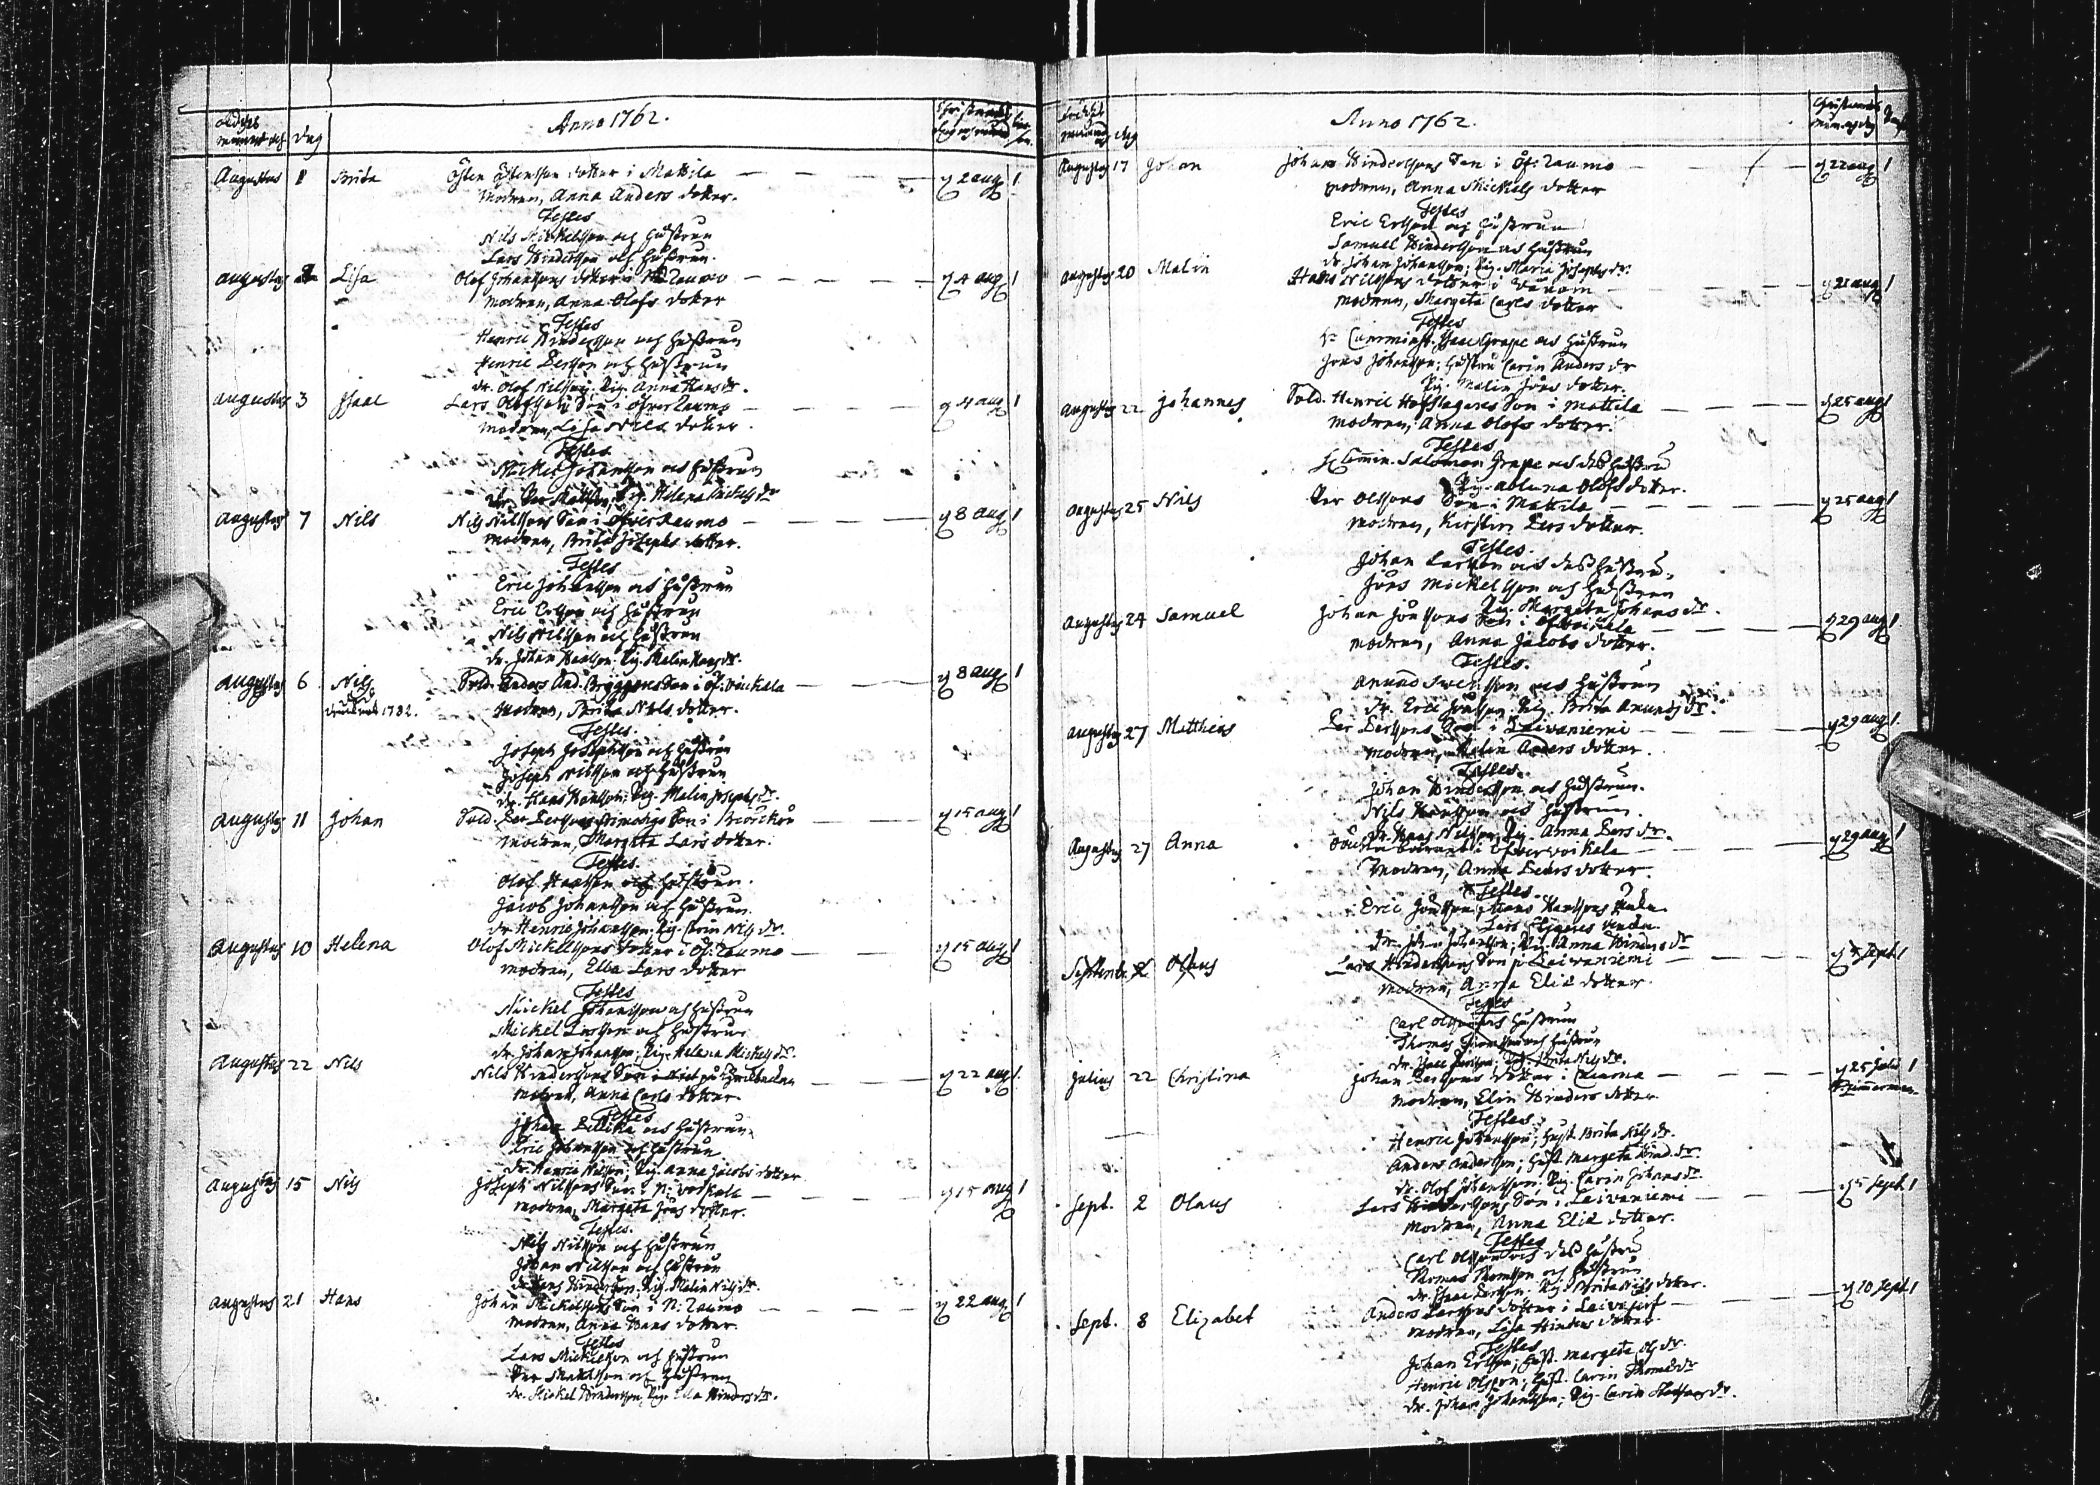 Anno 1762.
Augustus 1 Brita Östen Östensson dotter i Mattila 2 aug 1
modren, Anna Anders dotter.
Testes
Nils Mickelsson och hustrun
Lars Hindersson och hustrun.
augustus Lisa Olof Johanssons dotter i 4 aug 1
modren, Anna Olofs doter
Testes
Henric Hindersson och hustrun
Henric Persson och hustrun
dr. Olof Nilsson; Pig. Anna Hans dr.
augustus 3 Isaac Lars Olofssons Son i öfver Raumo 4 aug 1
modren, Lisa Nils dotter.
Testes
Mickel Johansson och hustrun
dr. Per Pig. Helena Mickels dr
augustus 7 Nils Nils Nilssons Son i öfver Raumo 8 aug 1
modren, Brita Josephs dotter.
Testes
Eric Johansson och hustrun
Eric Ersson och hustrun
Nils Nilsson och hustrun
dr. Johan Hansson; Pig. Malin Hans dr.
augustus 6 Nils Sold. Anders And. Bryggares Son i öf: Voickala 8 aug 1
1782. modren, Brita Nils dotter.
Testes.
Joseph Josephsson och hustrun
Joseph Nilsson och hustrun
dr. Hans Hansson; Pig. Malin Josephs dr.
augustus 11 Johan Sold. Per Perssons Son i Biörckön 15 aug 1
modren, Margeta Lars dotter.
Testes.
Olof Hansson och hustrun.
Jacob Johansson och hustrun
dr Henric Johansson; Pig. Carin Nils dr.
augustus 10 Helena Olof Mickelssons dotter i öf: Raumo 15 aug 1
modren, Elba Lars dotter
Testes
Mickel Johansson och hustrun
Mickel Larsson och hustrun
dr. Johan Johansson; Pig. Helena Mickels dr.
Augustus 22 Nils Nils Hinderssons Son 22 aug 1
modren, Anna Carls dotter
Testes
Johan och hustrun
Eric Johansson och hustrun
dr. Henric Nilsson; Pig. Anna Jacobs dotter
augustus 15 Nils Joseph Nilssons Son i N: Voickala 15 aug 1
modren, Margeta Jöns dotter.
Testes.
Nils Nilsson och hustrun
Johan Nilsson och hustrun
dr. Hans Hindersson; Pig. Malin Nils dr.
augustus 21 Hans Johan Mickelssons Son i N: Raumo 22 aug 1
modren, Anna Hans dotter.
Testes
Lars Mickelsson och hustrun
Per Mattsson och hustrun
dr. Mickel Hindersson; Pig. Ella Hinders dr.
Anno 1762.
Augustus 17 Johan Johan Hinderssons Son i öf: Raumo 22 aug 1
modren, Anna Mickels dotter
Testes
Eric Ersson och hustrun
Samuel Hindersson och hustrun
dr. Johan Johansson; Pig. Maria Josephs dr.
augustus 20 Malin Hans Nilssons dotter i 21 aug 1
modren, Margeta Carls dotter
Testes
Isaac Grape och hustrun
Jöns Johansson; hustru Carin Anders dr
Pig. Malin Jöns dotter.
augustus 22 Johannes Sold. Henric Hofslagares Son i Mattila 25 aug 1
modren, Anna Olofs dotter.
Testes
Salomon Grape och dess hustru
Olofs dotter.
augustus 25 Nils Per Olssons Son i Mattila 25 aug 1
modren, Kirstin Pers dotter.
Testes.
Johan Larsson och dess hustru,
Jöns Mickelsson och hustrun
Pig. Margeta Johans dr.
augustus 24 Samuel Johan Jönssons Son i 29 aug 1
modren, Anna Jacobs dotter.
Testes.
Amund Svensson och hustrun
dr. Eric Jönsson, Pig. Brita Amunds dr.
augustus 27 Matthias Per Perssons Son i Laivaniemi 29 aug 1
modren, Malin Anders dotter.
Testes.
Johan Hindersson och hustrun.
Nils Hansson och hustrun
dr. Hans Nilsson; Pig. Anna Pers dr.
Augustus 27 Anna barnet i öfver Voikala 29 aug 1
Modren, Anna Pers dotter.
Testes.
Eric Jönsson; Hans Hanssons
dr. Johan Johansson; Pig. Anna Hinders dr
Septemb. 2 Olaus Lars Hinderssons Son i Laivaniemi sept 1
modren, Anna Eliæ dotter
Testes
Carl Olsson och hustrun
Thomas Thomsson och hustrun
dr. Isaac Persson; Pig. Brita Nils dr.
Julius 22 Christina Johan Perssons dotter i 25 Julii 1
modren, Elin Hinders dotter
Testes
Henric Johansson; hust. Brita Nils dr.
Anders Andersson; hust. Margeta Hind. dr.
dr. Olof Johansson; Pig. Carin Johans dr
Sept. 2 Olaus Lars Hinderssons Son i Laivaniemi 5 sept. 1
modren, Anna Eliæ dotter.
Testes
Carl Olsson och dess hustru
Thomas Thomsson och hustrun
dr. Isaac Persson. Pig. Brita Nils dotter.
Sept. 8 Elizabet Anders Larssons dotter i 10 sept 1
modren, Lisa Hinders dotter
Testes
Johan Ersson; hust. Margeta Ol. dr.
Henric Olsson; hust. Carin Thomæ dr
dr. Johan Johansson; Pig. Carin